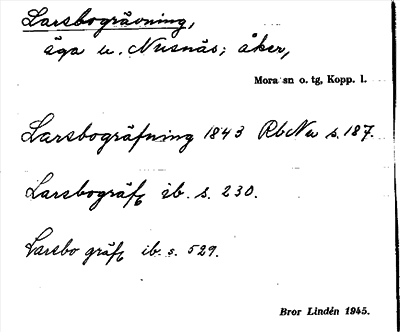 Larsbogrävning,
äga u. Nusnäs; åker,
Mora sn o. tg, Kopp. l.
Larsbogräfning 1843 RbNu s. 187.
Larsbogräfg ib. s. 230.
Larsbo gräfg ib. s. 529.
Bror Lindén 1945.